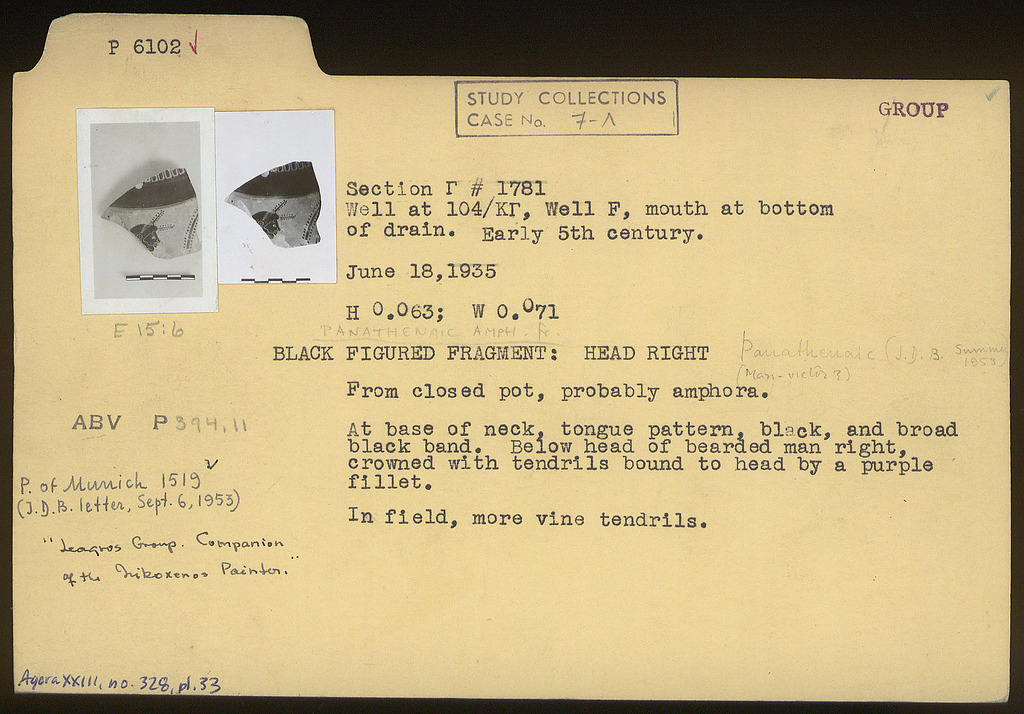 P 6102 ✓
STUDY COLLECTIONS
CASE No. 7-Λ
GROUP
Section Γ # 1781
Well at 104/ΚΓ, Well F, mouth at bottom
of drain. Early 5th century.
June 18,1935
H 0.063; W 0.071
E 15:6
PANATHENAIC AMPH. fr.
BLACK FIGURED FRAGMENT: HEAD RIGHT
Panathenaic (J.D.B. Summer
1953)
(Man-victor?)
From closed pot, probably amphora.
ABV P 394,11
At base of neck, tongue pattern, black, and broad
black band. Below head of bearded man right,
crowned with tendrils bound to head by a purple
fillet.
P. of Munich 1519 ✓
(J.D.B. letter, Sept. 6, 1953)
In field, more vine tendrils.
"Leagros Group. Companion
of the Nikoxenos Painter."
Agora XXIII, no. 328, pl. 33